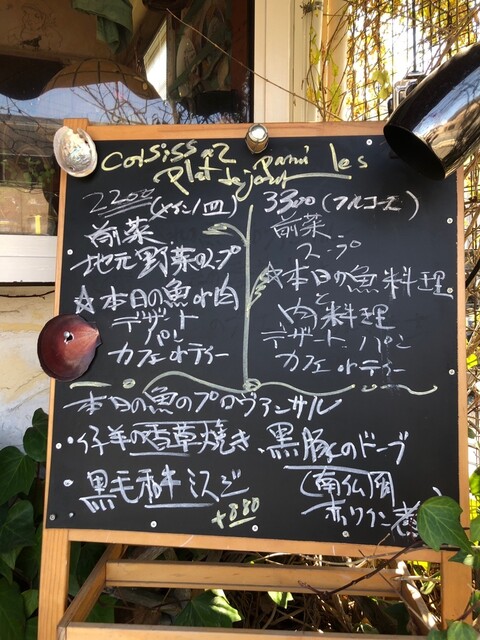 Choisissez Parmi les
Plat de jour
2200 (メイン1皿)
前菜
地元野菜のスープ
☆本日の魚or肉
デザート
パン
カフェorティー
3300 (フルコース)
前菜
スープ
☆本日の魚料理
と
肉料理
デザート パン
カフェorティー
本日の魚のプロヴァンサル
仔羊の香草焼き
黒豚のドーブ
(南仏風
赤ワイン煮
黒毛和牛
+880